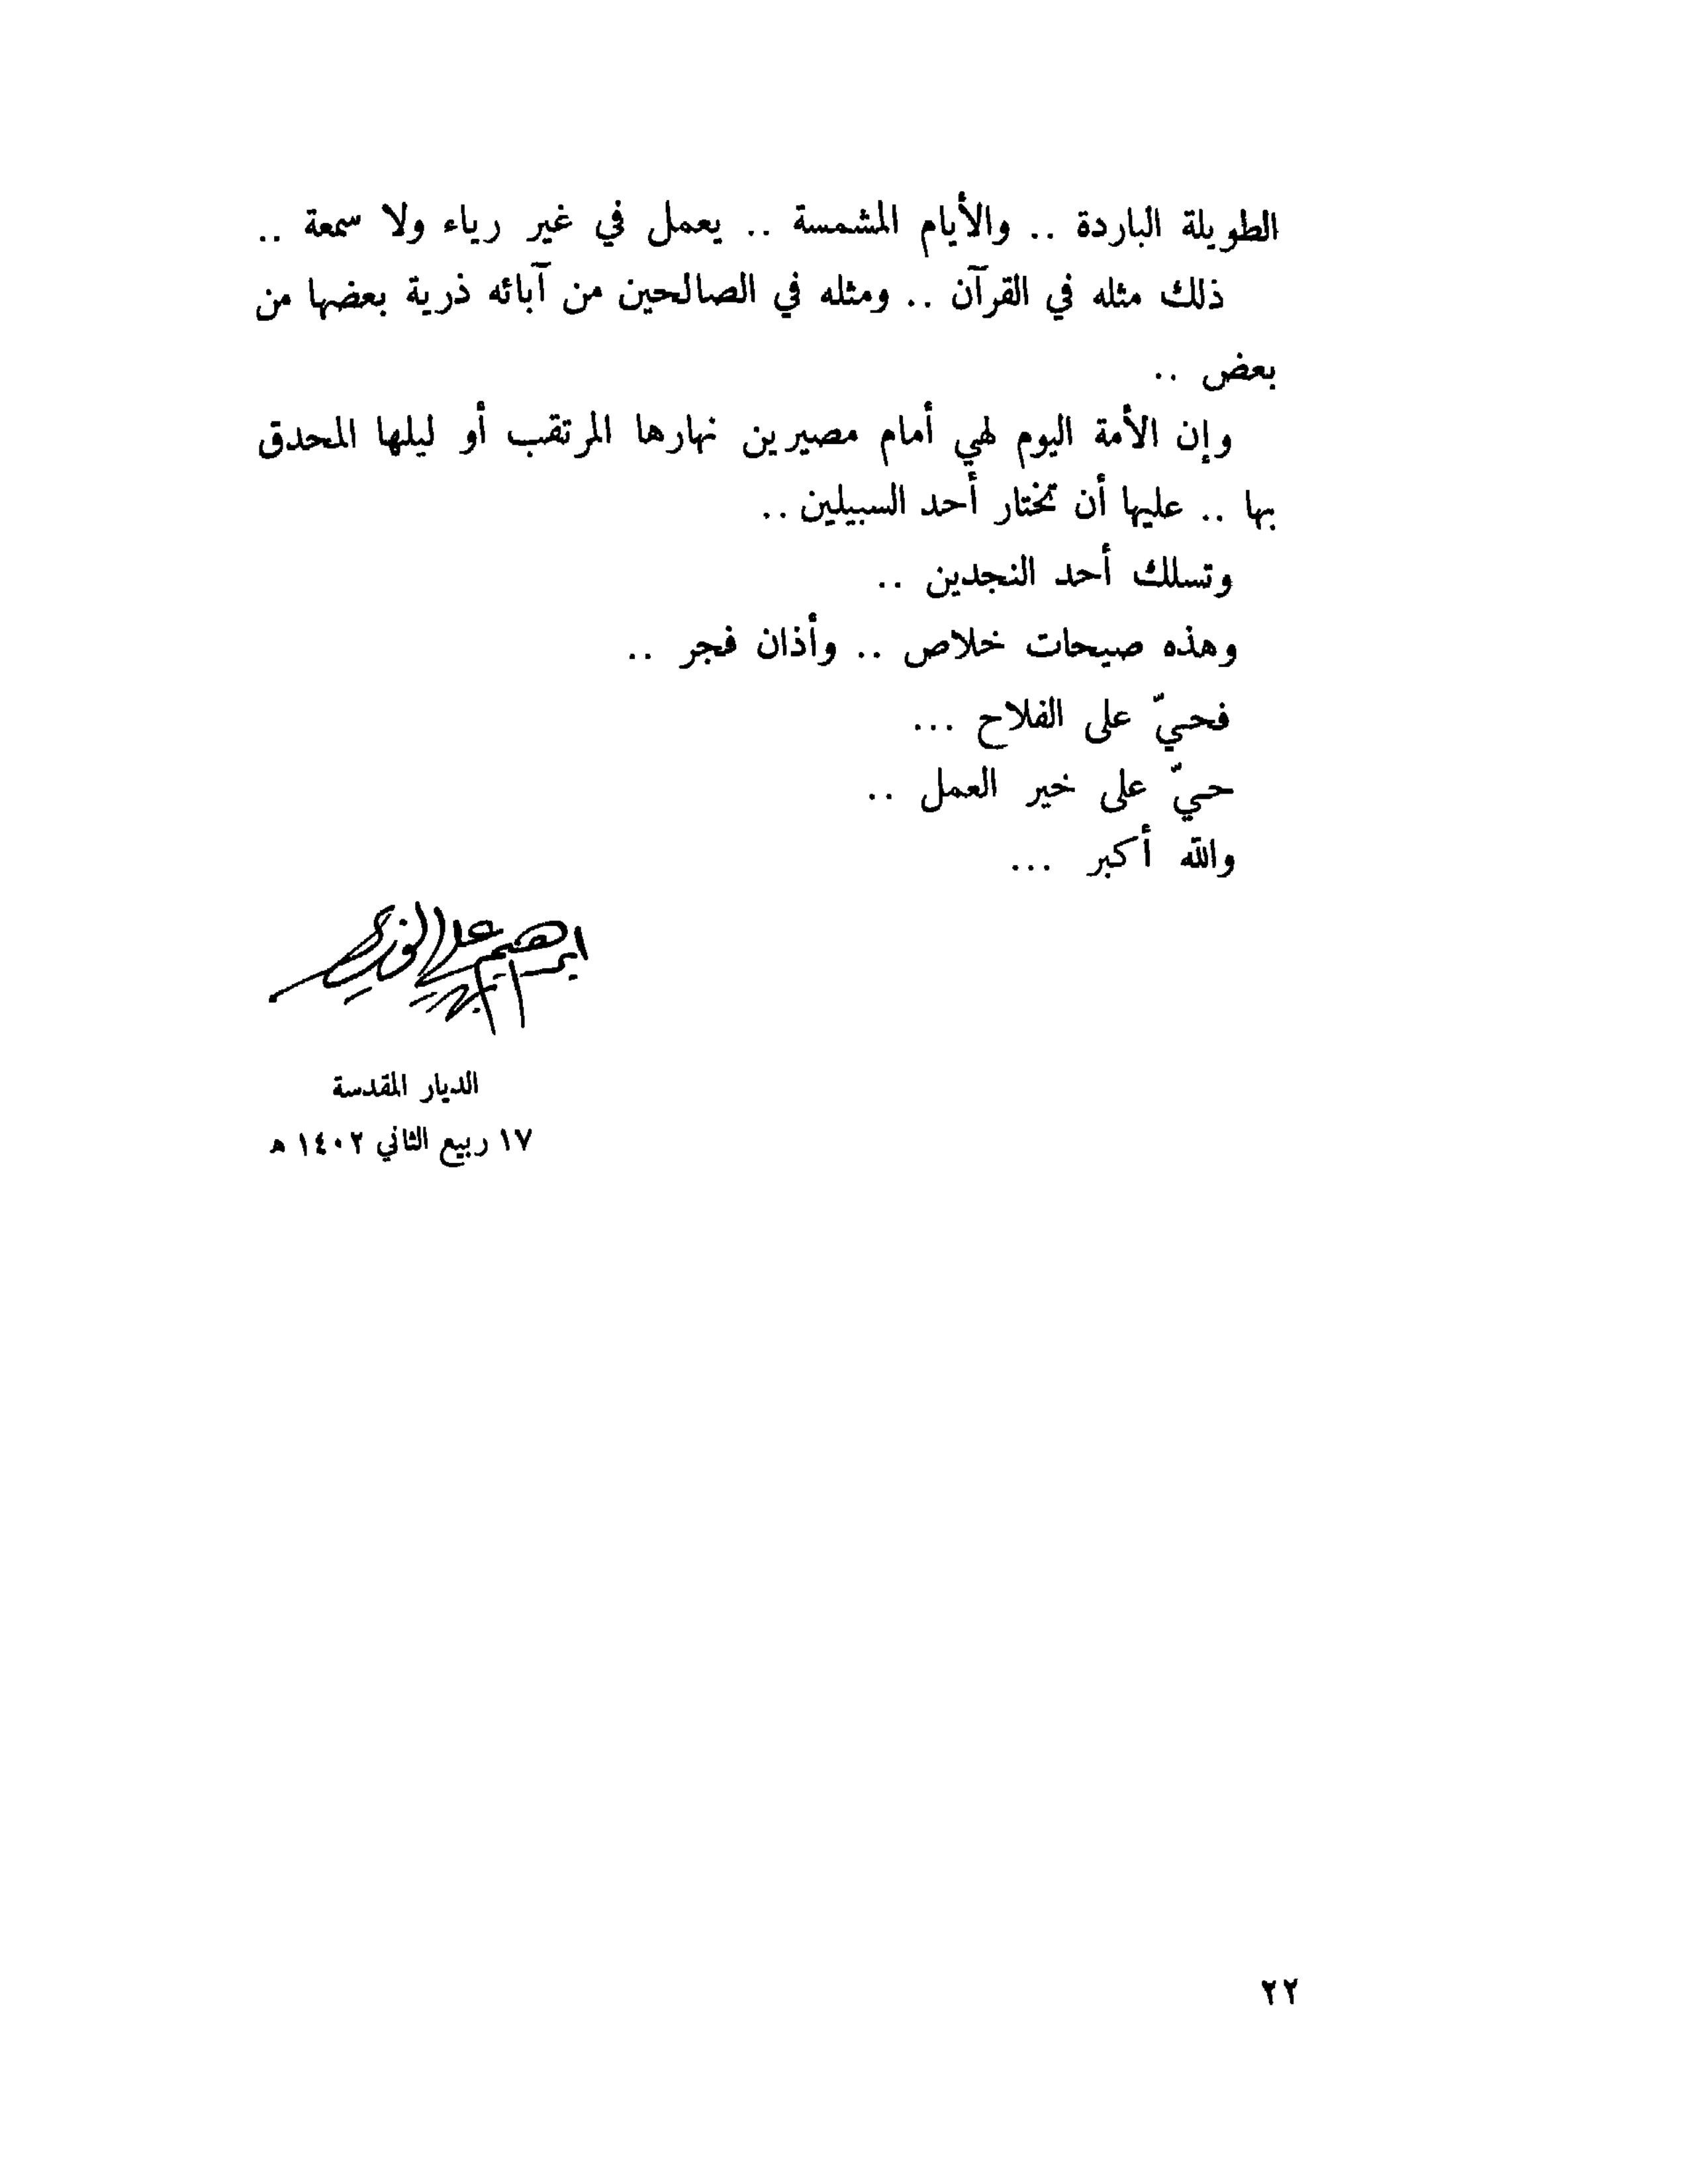 الطويلة الباردة .. والأيام المشمسة .. يعمل في غير رياء ولا سمعة ..
ذلك مثله في القرآن .. ومثله في الصالحين من آبائه ذرية بعضها من
بعض ..
وإن الأمة اليوم لهي أمام مصيرين نهارها المرتقب أو ليلها المحدق
بها .. عليها أن تختار أحد السبيلين ..
وتسلك أحد النجدين ..
وهذه صيحات خلاص .. وأذان فجر ..
فحيّ على الفلاح ...
حيّ على خير العمل ..
والله أكبر ...
ابراهيم علي الوزير
الديار المقدسة
١٧ ربيع الثاني ١٤٠٢ هـ
٢٢